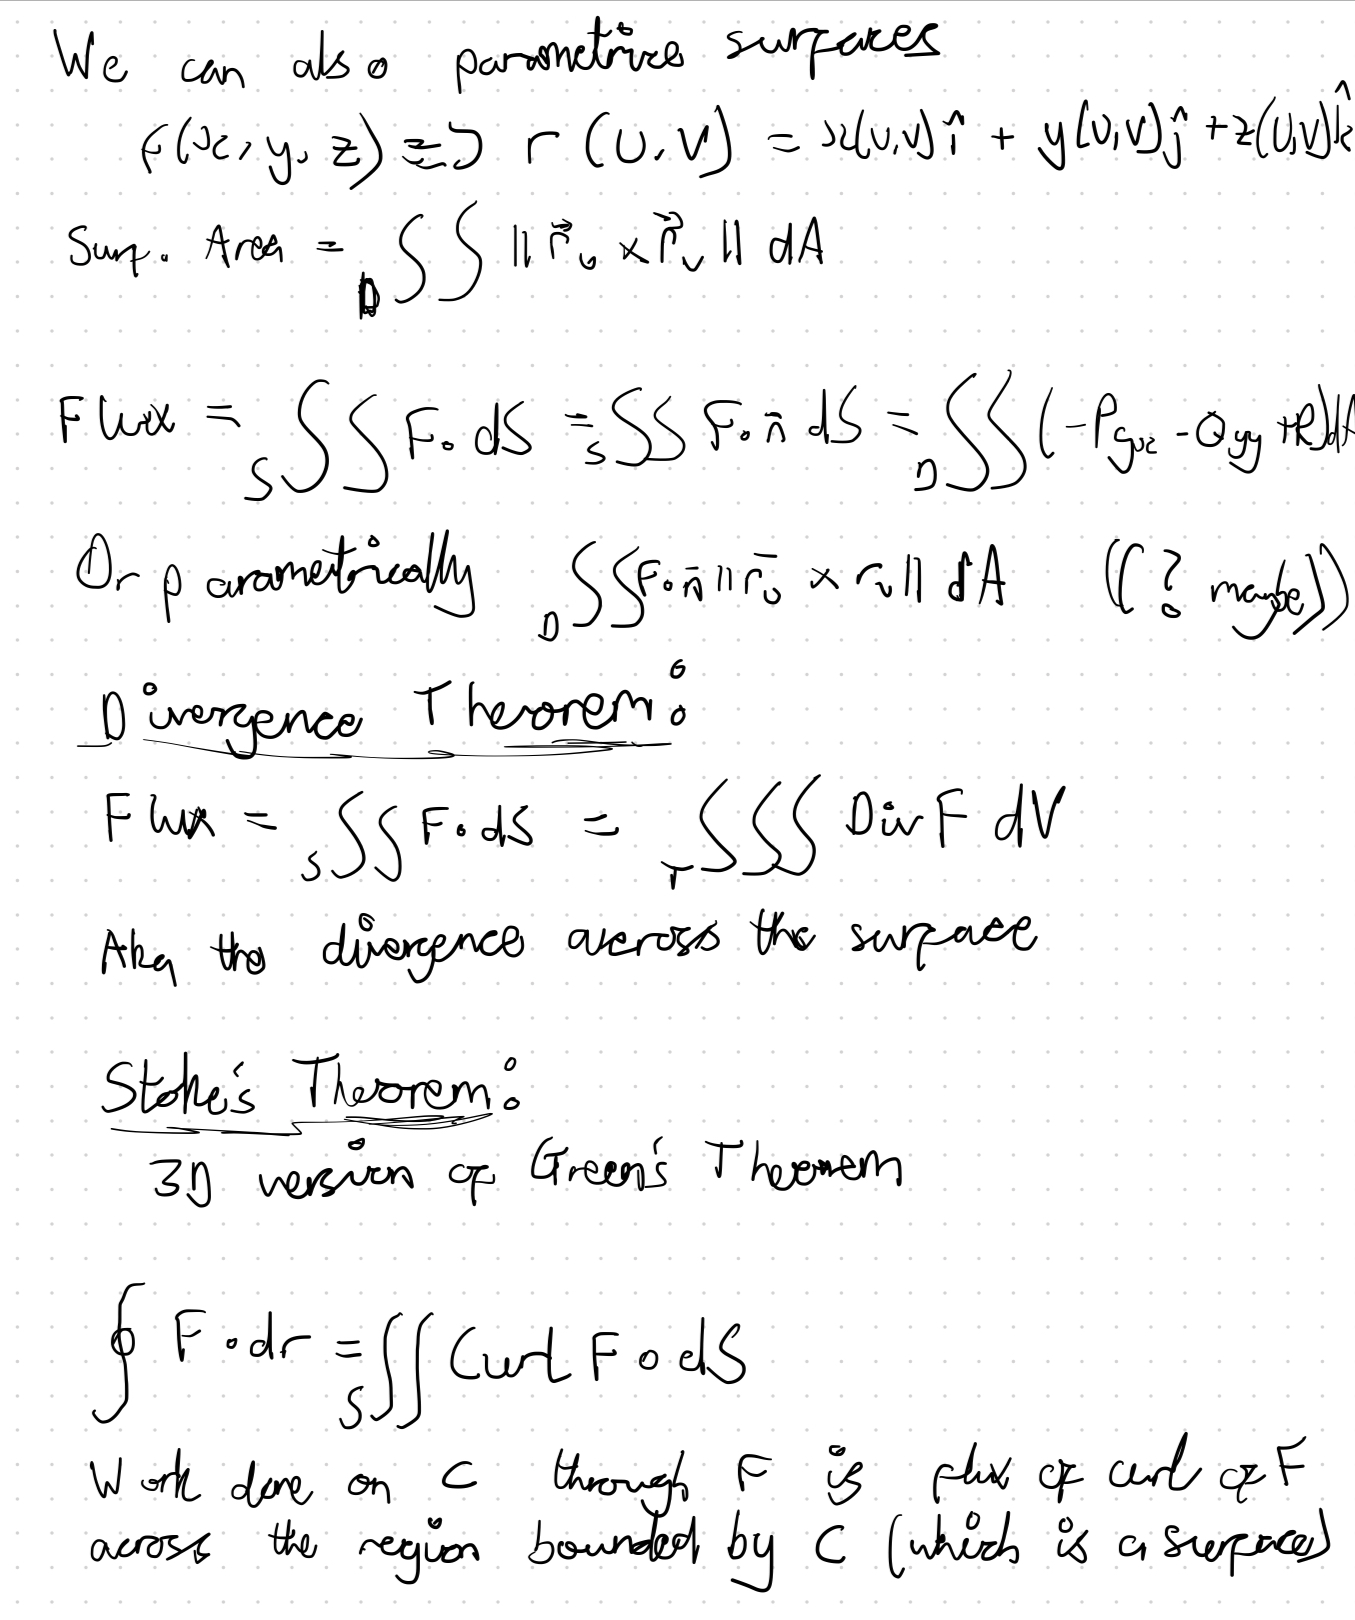 We can also parametrize surfaces
f(x, y, z) => r (u, v) = x(u,v) î + y(u,v) ĵ + z(u,v) k̂
Surf. Area = ∬_D ‖r⃗_u × r⃗_v‖ dA
Flux = ∬_S F · dS = ∬_S F · n̄ dS = ∬_D (-P g_x - Q g_y + R) dA
Or parametrically ∬_D F · n̄ ‖r̄_u × r_v‖ dA ((? maybe))
Divergence Theorem:
Flux = ∬_S F · dS = ∭_T Div F dV
Aka the divergence across the surface
Stoke's Theorem:
3D version of Green's Theorem
∮ F · dr = ∬_S Curl F · dS
Work done on C through F is flux of curl of F
across the region bounded by C (which is a surface)